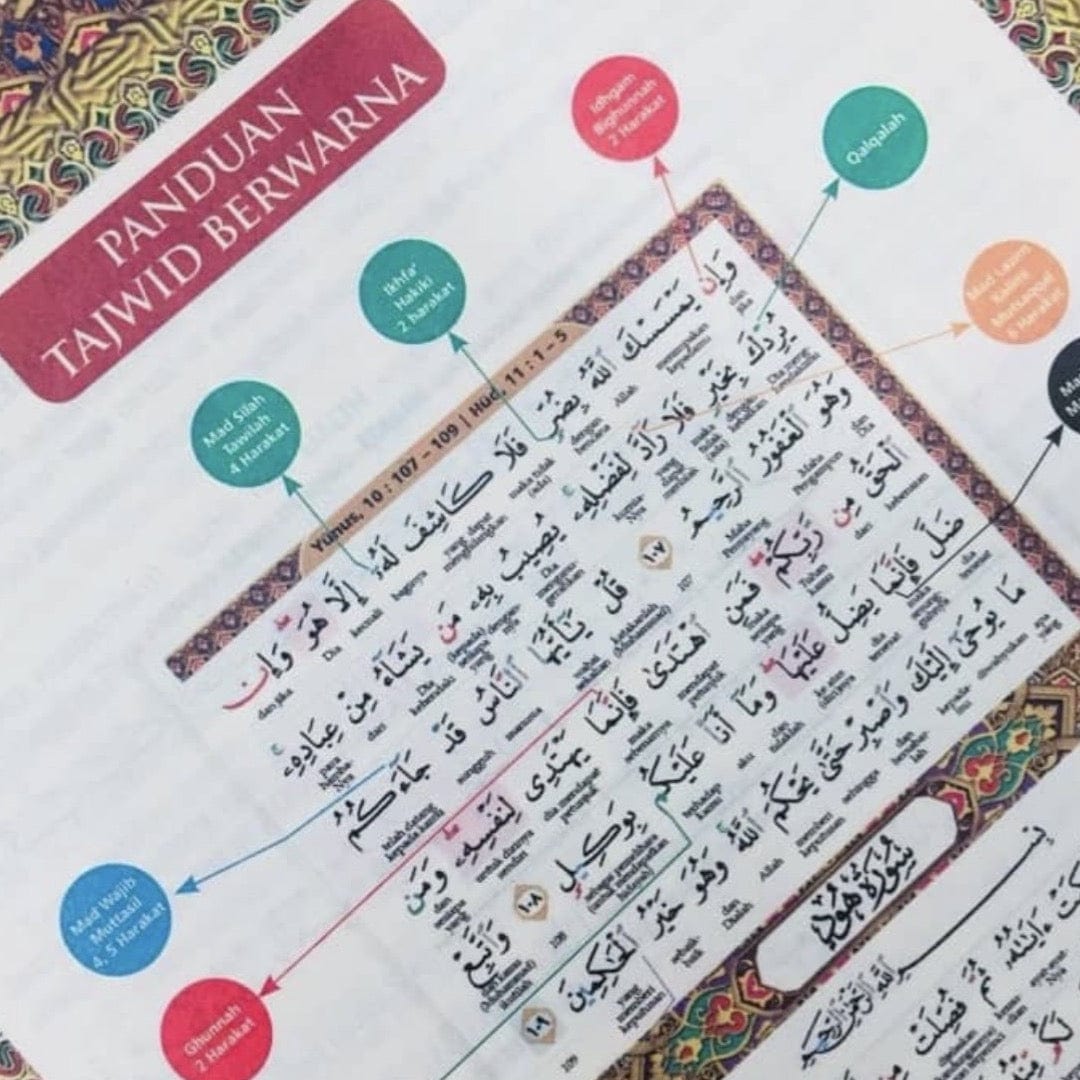 PANDUAN
TAJWID BERWARNA
Idhgam
Bighunnah
2 Harakat
Qalqalah
Ikhfa'
Hakiki
2 harakat
Mad Lazim
Kalimi
Muthaqqal
6 Harakat
Mad Silah
Tawilah
4 Harakat
Yunus, 10 : 107 – 109 | Hud, 11 : 1 – 5
وَإِن يَمْسَسْكَ ٱللَّهُ بِضُرٍّ فَلَا كَاشِفَ لَهُۥٓ إِلَّا هُوَ ۖ وَإِن
dan jika Allah dengan bencana maka tidak (ada) yang dapat menghilangkan baginya kecuali Dia dan jika
يُرِدْكَ بِخَيْرٍ فَلَا رَآدَّ لِفَضْلِهِۦ ۚ يُصِيبُ بِهِۦ مَن يَشَآءُ مِنْ عِبَادِهِۦ ۚ
dengan kebaikan Dia kehendaki dari
وَهُوَ ٱلْغَفُورُ ٱلرَّحِيمُ ١٠٧ قُلْ يَـٰٓأَيُّهَا ٱلنَّاسُ قَدْ جَآءَكُمُ
dan Dia Maha Pengampun Maha Penyayang 107 manusia sungguh telah datang kepada kamu
ٱلْحَقُّ مِن رَّبِّكُمْ ۖ فَمَنِ ٱهْتَدَىٰ فَإِنَّمَا يَهْتَدِى لِنَفْسِهِۦ ۖ وَمَن
kebenaran dari Tuhan kamu mendapat petunjuk maka sebenarnya dia mendapat petunjuk untuk dirinya sendiri
ضَلَّ فَإِنَّمَا يَضِلُّ عَلَيْهَا ۖ وَمَآ أَنَا۠ عَلَيْكُم بِوَكِيلٍ ١٠٨ وَٱتَّبِعْ
dia tersesat dia tersesat ke atas dirinya dan tidaklah aku terhadap kamu 108
مَا يُوحَىٰٓ إِلَيْكَ وَٱصْبِرْ حَتَّىٰ يَحْكُمَ ٱللَّهُ ۚ وَهُوَ خَيْرُ ٱلْحَـٰكِمِينَ ١٠٩
apa yang diwahyukan kepada-mu dan bersabar-lah sehingga memberi keputusan Allah dan Dialah sebaik-baik yang memberi keputusan 109
Mad Wajib
Muttasil
4, 5 Harakat
Ghunnah
2 Harakat
سُورَةُ هُودٍ
بِسْمِ ٱللَّهِ ٱلرَّحْمَـٰنِ ٱلرَّحِيمِ
ءَايَـٰتُهُۥ ثُمَّ فُصِّلَتْ